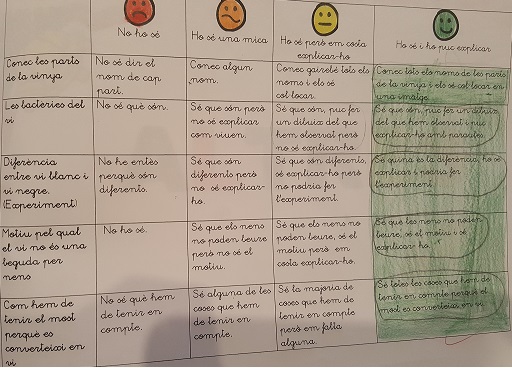 No ho sé
Ho sé una mica
Ho sé però em costa
explicar-ho
Ho sé i ho puc explicar
Conec les parts
de la vinya
No sé dir el
nom de cap
part.
Conec algun
nom.
Conec gairebé tots els
noms i els sé
col·locar.
Conec tots els noms de les parts
de la vinya i els sé col·locar en
una imatge.
Les bactèries del
vi
No sé què són.
Sé que són però
no sé explicar
com viuen.
Sé que són, puc fer
un dibuix del que
hem observat però
no sé explicar-ho.
Sé que són, puc fer un dibuix
del que hem observat i puc
explicar-ho amb paraules.
Diferència
entre vi blanc i
vi negre.
(Experiment)
No he entès
perquè són
diferents.
Sé que són
diferents però
no sé explicar-
ho.
Sé que són diferents,
sé explicar-ho però
no podria fer
l'experiment.
Sé quina és la diferència, ho sé
explicar i podria fer
l'experiment.
Motiu pel qual
el vi no és una
beguda per
nens
No ho sé.
Sé que els nens
no poden beure
però no sé el
motiu.
Sé que els nens no
poden beure, sé el
motiu però em
costa explicar-ho.
Sé que els nens no poden
beure, sé el motiu i sé
explicar-ho.
Com hem de
tenir el most
perquè es
converteixi en
vi
No sé què hem
de tenir en
compte.
Sé alguna de les
coses que hem
de tenir en
compte.
Sé la majoria de
coses que hem de
tenir en compte
però em falta
alguna.
Sé totes les coses que hem de
tenir en compte perquè el
most es converteixi en vi.